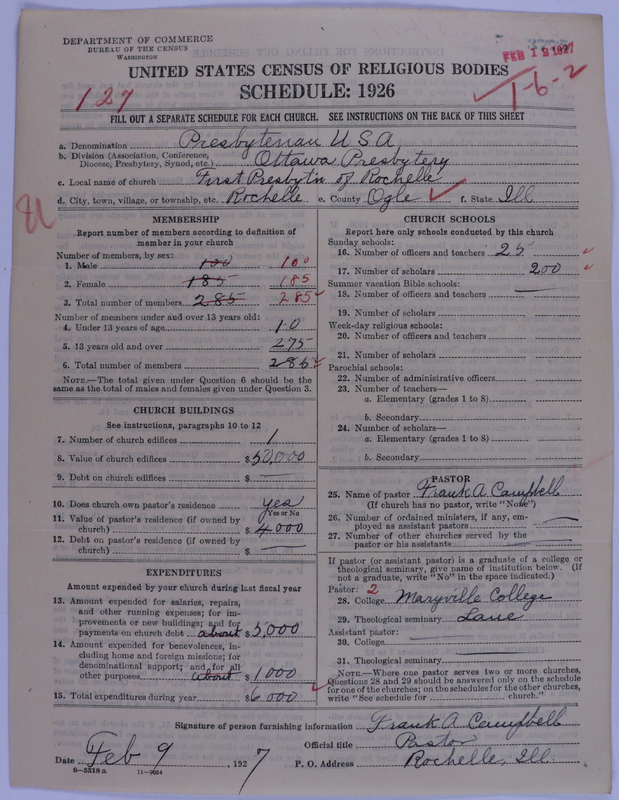 DEPARTMENT OF COMMERCE
BUREAU OF THE CENSUS
WASHINGTON
FEB 12 1927
UNITED STATES CENSUS OF RELIGIOUS BODIES
SCHEDULE: 1926
127
1-6-2
FILL OUT A SEPARATE SCHEDULE FOR EACH CHURCH. SEE INSTRUCTIONS ON THE BACK OF THIS SHEET
a. Denomination Presbyterian U S A
b. Division (Association, Conference, Diocese, Presbytery, Synod, etc.) Ottawa Presbytery
c. Local name of church First Presbyt'n of Rochelle
d. City, town, village, or township, etc. Rochelle e. County Ogle f. State Ill
MEMBERSHIP
Report number of members according to definition of
member in your church
Number of members, by sex:
1. Male 100 100
2. Female 185 185
3. Total number of members 285 285
Number of members under and over 13 years old:
4. Under 13 years of age 10
5. 13 years old and over 275
6. Total number of members 285
NOTE.—The total given under Question 6 should be
same as the total of males and females given under Question 3.
CHURCH BUILDINGS
See instructions, paragraphs 10 to 12
7. Number of church edifices 1
8. Value of church edifices $50,000
9. Debt on church edifices $
10. Does church own pastor's residence yes
Yes or No
11. Value of pastor's residence (if owned by
church) $4000
12. Debt on pastor's residence (if owned by
church) $
EXPENDITURES
Amount expended by your church during last fiscal year
13. Amount expended for salaries, repairs,
and other running expenses; for im-
provements or new buildings; and for
payments on church debt about $5,000
14. Amount expended for benevolences, in-
cluding home and foreign missions; for
denominational support; and for all
other purposes about $1000
15. Total expenditures during year $6000
CHURCH SCHOOLS
Report here only schools conducted by this church
Sunday schools:
16. Number of officers and teachers 25
17. Number of scholars 200
Summer vacation Bible schools:
18. Number of officers and teachers
19. Number of scholars
Week-day religious schools:
20. Number of officers and teachers
21. Number of scholars
Parochial schools:
22. Number of administrative officers
23. Number of teachers—
a. Elementary (grades 1 to 8)
b. Secondary
24. Number of scholars—
a. Elementary (grades 1 to 8)
b. Secondary
PASTOR
25. Name of pastor Frank A. Campbell
(If church has no pastor, write "None")
26. Number of ordained ministers, if any, em-
ployed as assistant pastors
27. Number of other churches served by the
pastor or his assistants
If pastor (or assistant pastor) is a graduate of a college or
theological seminary, give name of institution below. (If
not a graduate, write "No" in the space indicated.)
Pastor: 2
28. College Maryville College
29. Theological seminary Lane
Assistant pastor:
30. College
31. Theological seminary
NOTE.—Where one pastor serves two or more churches,
Questions 28 and 29 should be answered only on the schedule
for one of the churches; on the schedules for the other churches,
write "See schedule for church."
Signature of person furnishing information Frank A. Campbell
Official title Pastor
Date Feb 9, 1927 P. O. Address Rochelle, Ill.
8-5518 a 11-9054